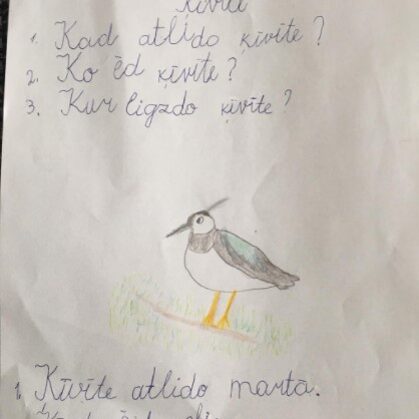 1. Kad atlido ķīvīte?
2. Ko ēd ķīvīte?
3. Kur ligzdo ķīvīte?
1. Ķīvīte atlido martā.